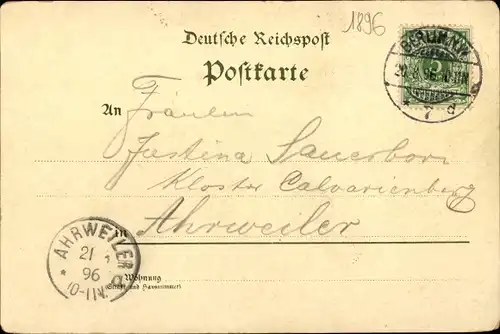 1896
Deutsche Reichspost
Postkarte
BERLIN N.W.
20 8 96 10-11N
7 d
An Fräulein
Justina Sauerborn
Kloster Calvarienberg
in Ahrweiler
AHRWEILER
21
96
10-11V
Wohnung
(Straße und Hausnummer)